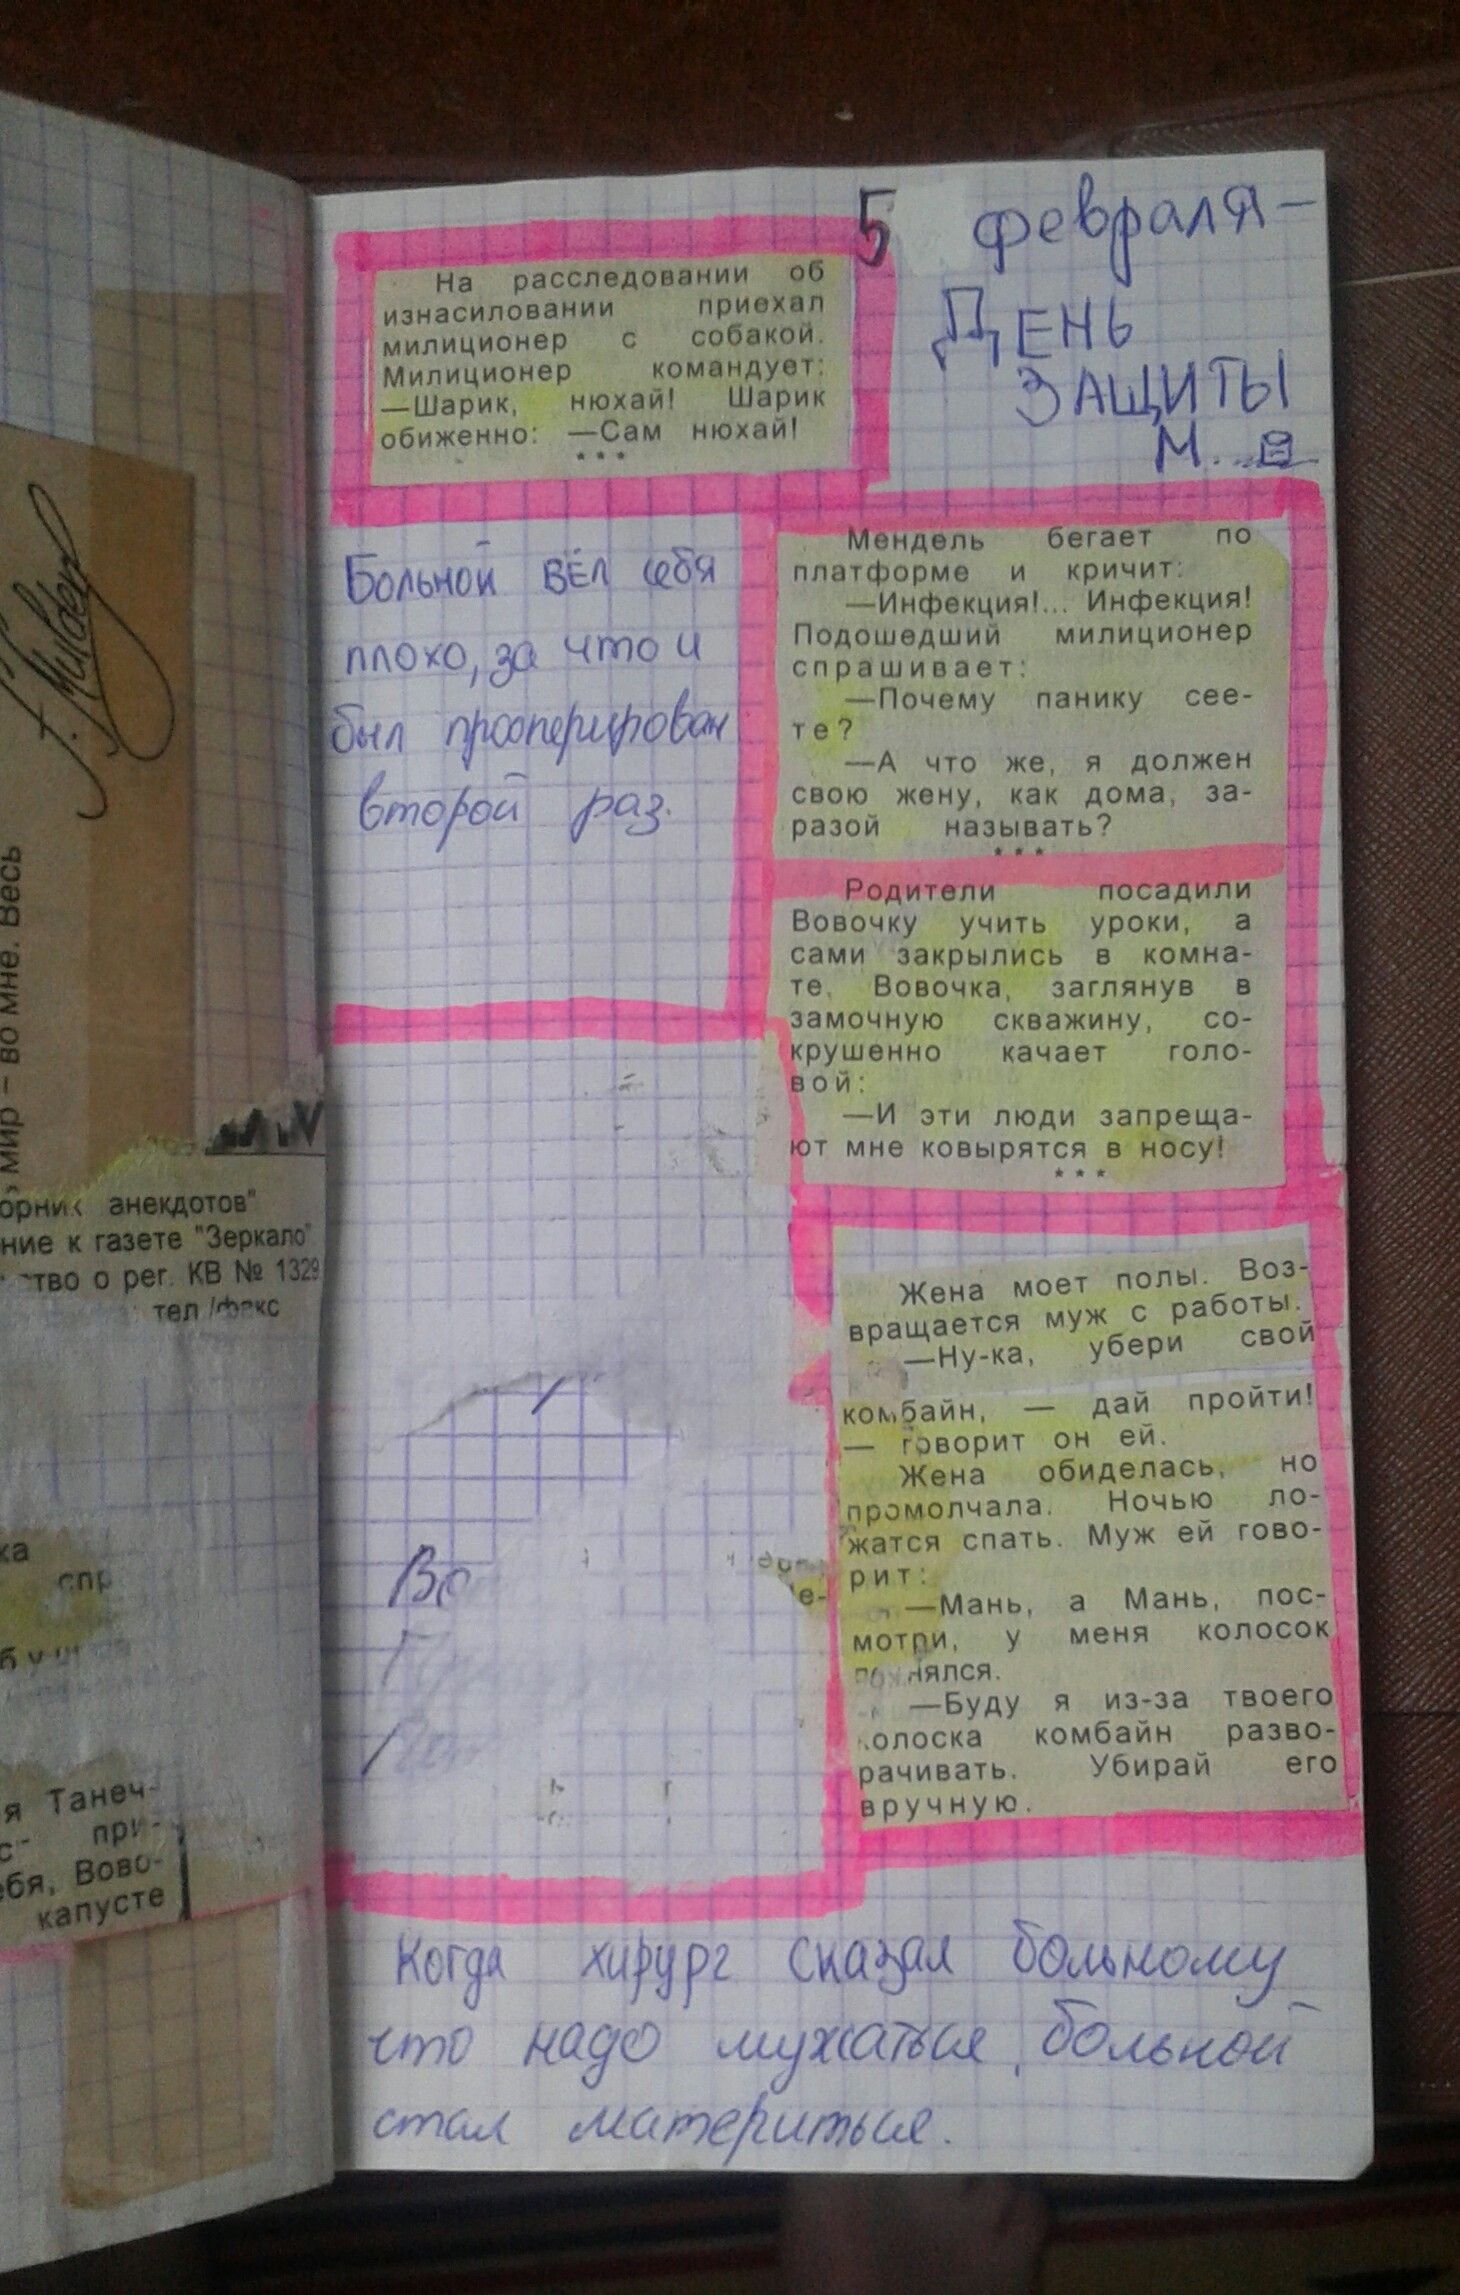 мир – во мне. Весь
анекдотов"
к газете "Зеркало"
о рег. КВ № 1329
тел./факс
я Танеч-
при-
Вово-
капусте
5 февраля –
ДЕНЬ
ЗАЩИТЫ
М...
На расследовании об
изнасиловании приехал
милиционер с собакой.
Милиционер командует:
—Шарик, нюхай! Шарик
обиженно: —Сам нюхай!
* * *
Больной вёл себя
плохо, за что и
был прооперирован
второй раз.
Мендель бегает по
платформе и кричит:
—Инфекция!... Инфекция!
Подошедший милиционер
спрашивает:
—Почему панику сее-
те?
—А что же, я должен
свою жену, как дома, за-
разой называть?
* * *
Родители посадили
Вовочку учить уроки, а
сами закрылись в комна-
те. Вовочка, заглянув в
замочную скважину, со-
крушенно качает голо-
вой:
—И эти люди запреща-
ют мне ковырятся в носу!
* * *
Жена моет полы. Воз-
вращается муж с работы.
—Ну-ка, убери свой
комбайн, — дай пройти!
— говорит он ей.
Жена обиделась, но
промолчала. Ночью ло-
жатся спать. Муж ей гово-
рит:
—Мань, а Мань, пос-
мотри, у меня колосок
поднялся.
—Буду я из-за твоего
колоска комбайн разво-
рачивать. Убирай его
вручную.
Когда хирург сказал больному
что надо мужаться, больной
стал материться.